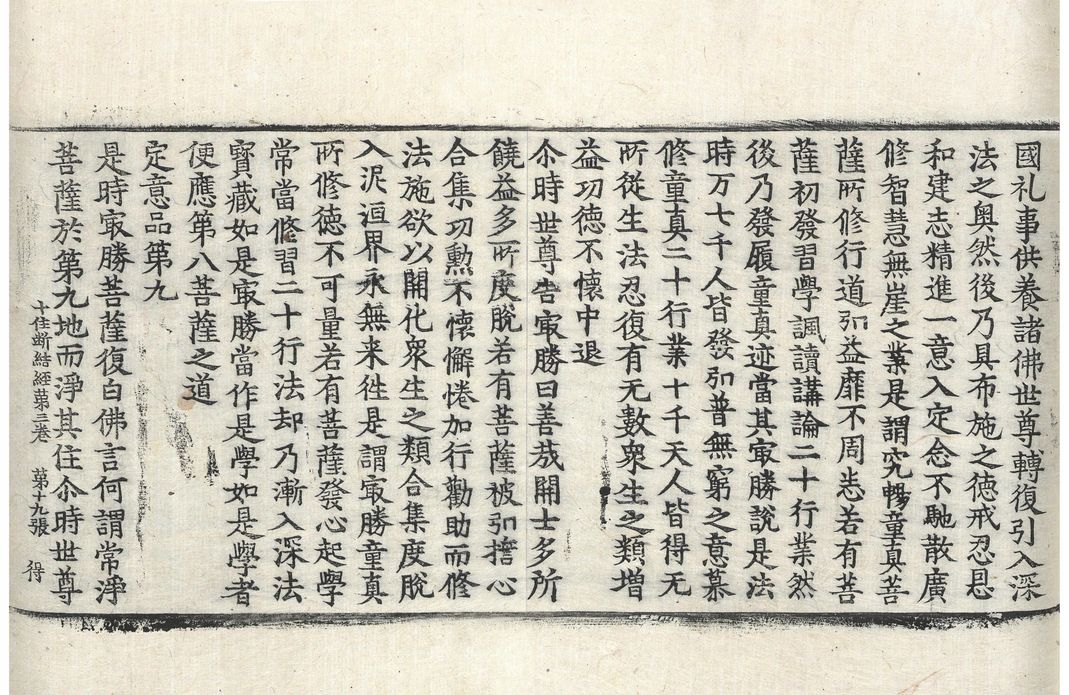 國礼事供養諸佛世尊轉復引入深
法之奥然後乃具布施之德戒忍忍
和建志精進一意入定念不馳散廣
修智慧無崖之業是謂究暢童真菩
薩所修行道弘益靡不周悉若有菩
薩初發習學諷讀講論二十行業然
後乃發履童真迹當其㝡勝說是法
時万七千人皆發弘普無窮之意慕
修童真二十行業十千天人皆得无
所從生法忍復有无數衆生之類增
益功德不懷中退
尒時世尊告㝡勝曰善哉開士多所
饒益多所度脫若有菩薩被弘擔心
合集功勲不懷懈惓加行勸助而修
法施欲以開化衆生之類合集度脫
入泥洹界永無来徃是謂㝡勝童真
所修德不可量若有菩薩發心起學
常當修習二十行法却乃漸入深法
寳藏如是㝡勝當作是學如是學者
便應第八菩薩之道
定意品第九
是時㝡勝菩薩復白佛言何謂常淨
菩薩於第九地而淨其住尒時世尊
十住断結經苐三卷　苐十九張　得